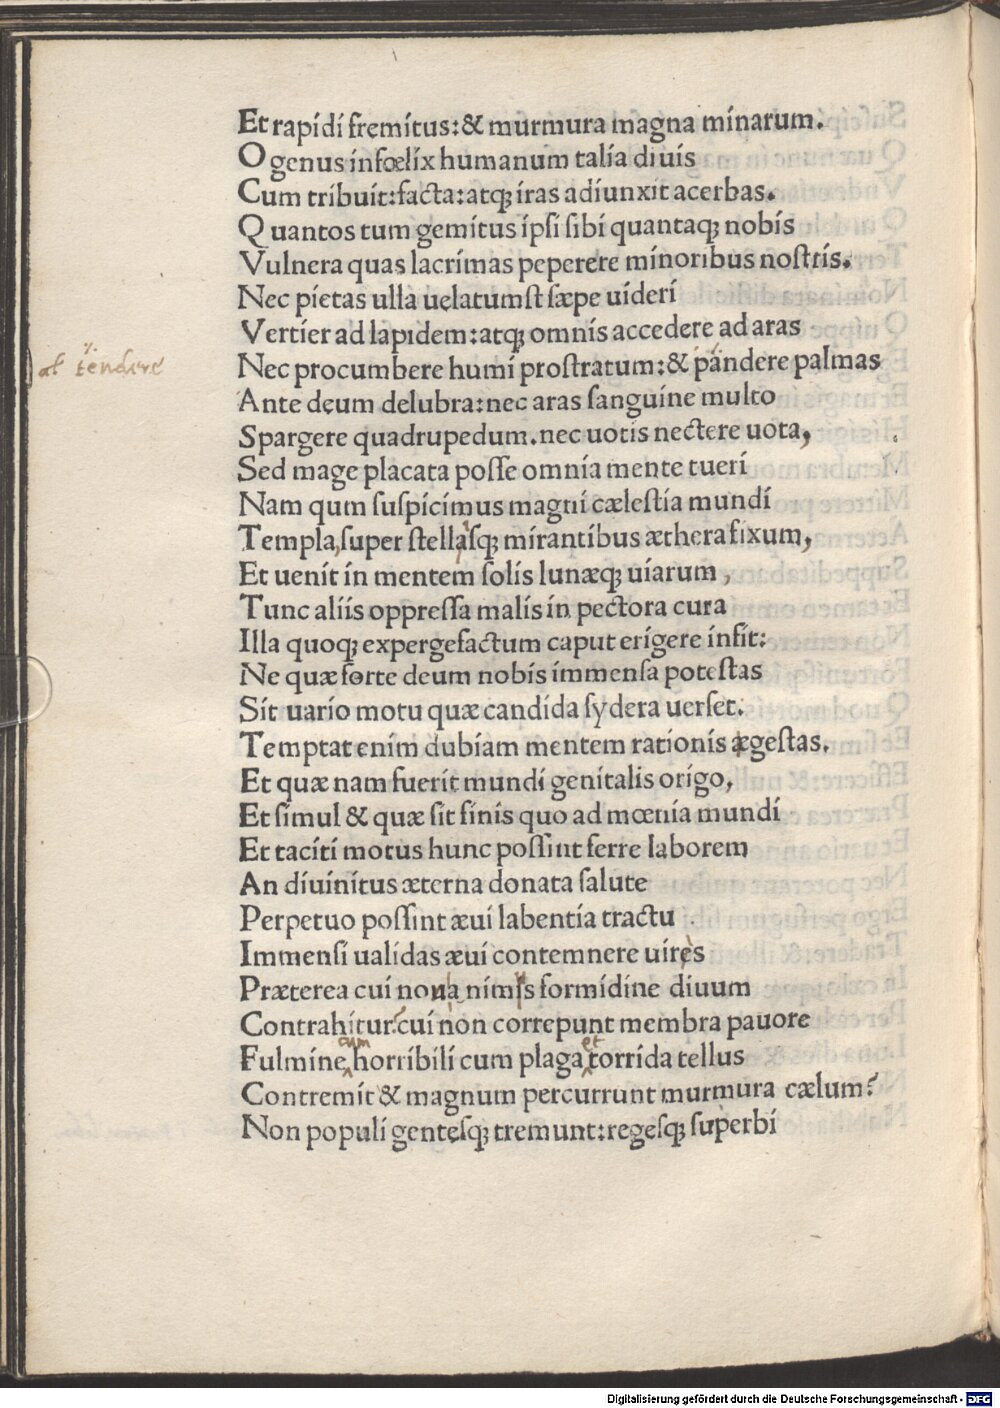 Et rapidi fremitus: & murmura magna minarum.
O genus infœlix humanum talia diuis
Cum tribuit: facta: atq; iras adiunxit acerbas.
Quantos tum gemitus ipsi sibi quantaq; nobis
Vulnera quas lacrimas peperere minoribus nostris.
Nec pietas ulla uelatumst sæpe uideri
Vertier ad lapidem: atq; omnis accedere ad aras
al tendere
Nec procumbere humi prostratum: & pandere palmas
Ante deum delubra: nec aras sanguine multo
Spargere quadrupedum. nec uotis nectere uota,
Sed mage placata posse omnia mente tueri
Nam qum suspicimus magni cælestia mundi
Templa, super stellasq; mirantibus æthera fixum,
Et uenit in mentem solis lunæq; uiarum,
Tunc aliis oppressa malis in pectora cura
Illa quoq; expergefactum caput erigere infit:
Ne quæ forte deum nobis immensa potestas
Sit uario motu quæ candida sydera uerset.
Temptat enim dubiam mentem rationis ægestas.
Et quæ nam fuerit mundi genitalis origo,
Et simul & quæ sit finis quo ad mœnia mundi
Et taciti motus hunc possint ferre laborem
An diuinitus æterna donata salute
Perpetuo possint æui labentia tractu
Immensi ualidas æui contemnere uires
Præterea cui nona nimis formidine diuum
Contrahitur? cui non correpunt membra pauore
cum et
Fulmine horribili cum plaga torrida tellus
Contremit & magnum percurrunt murmura cælum?
Non populi gentesq; tremunt: regesq; superbi
Digitalisierung gefördert durch die Deutsche Forschungsgemeinschaft - DFG